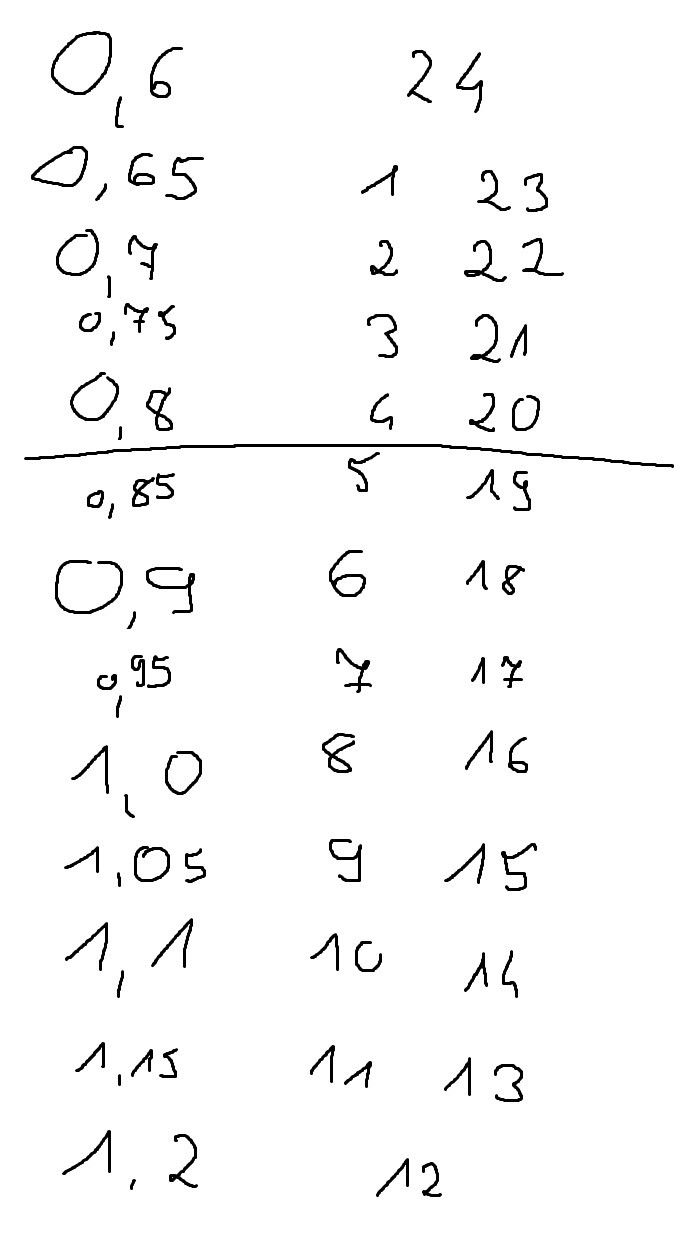 0,6 24
0,65 1 23
0,7 2 22
0,75 3 21
0,8 4 20
0,85 5 19
0,9 6 18
0,95 7 17
1,0 8 16
1,05 9 15
1,1 10 14
1,15 11 13
1,2 12